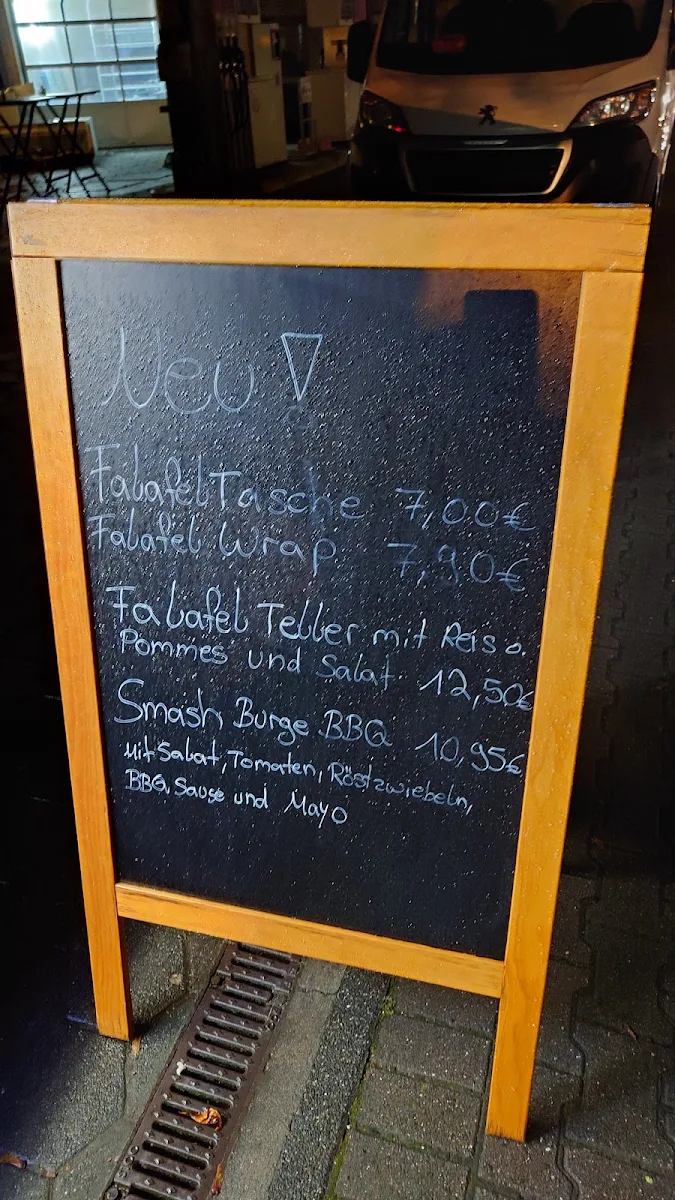 Neu !
Falafel Tasche 7,00€
Falafel Wrap 7,90€
Falafel Teller mit Reis o.
Pommes und Salat 12,50€
Smash Burge BBQ 10,95€
Mit Salat, Tomaten, Röstzwiebeln,
BBQ Sause und Mayo